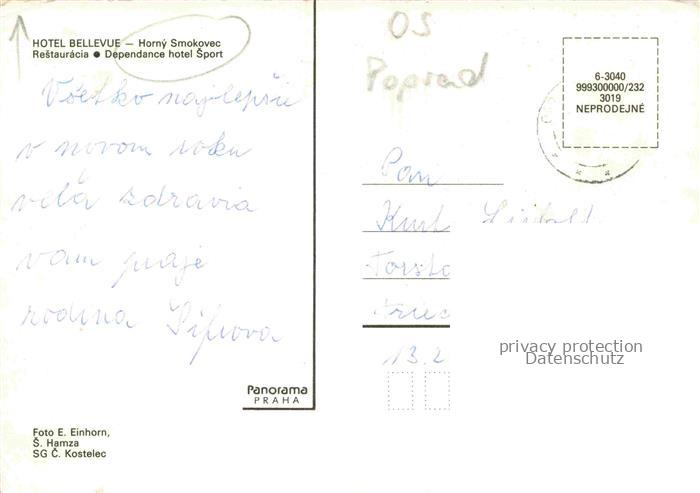 HOTEL BELLEVUE — Horný Smokovec
Reštaurácia ● Dependance hotel Šport
Všetko najlepšie
v novom roku
veľa zdravia
vám praje
rodina
Panorama
PRAHA
Foto E. Einhorn,
Š. Hamza
SG Č. Kostelec
OS
Poprad
6-3040
999300000/232
3019
NEPRODEJNÉ
Pan
Kurt
13.2
privacy protection
Datenschutz